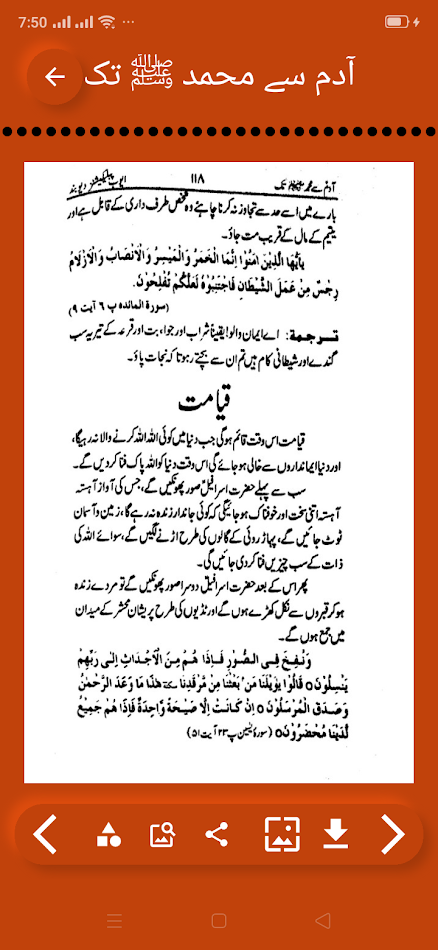 7:50
آدم سے محمد ﷺ تک
آدم سے محمد ﷺ تک ١١٨ ایوب پبلیکیشنز دیوبند
بارے میں اسے حد سے تجاوز نہ کرنا چاہئے وہ شخص طرف داری کے قابل ہے اور
یتیم کے مال کے قریب مت جاؤ۔
یٰاَیُّهَا الَّذِیْنَ اٰمَنُوْا اِنَّمَا الْخَمْرُ وَ الْمَیْسِرُ وَ الْاَنْصَابُ وَ الْاَزْلَامُ
رِجْسٌ مِنْ عَمَلِ الشَّیْطَانِ فَاجْتَنِبُوْهُ لَعَلَّکُمْ تُفْلِحُوْنَ۔
(سورة المائدہ پ ٦ آیت ٩)
ترجمہ: اے ایمان والو! یقیناً شراب اور جوا، بت اور قرعہ کے تیر یہ سب
گندے اور شیطانی کام ہیں تم ان سے بچتے رہو تا کہ نجات پاؤ۔
قیامت
قیامت اس وقت قائم ہوگی جب دنیا میں کوئی اللہ اللہ کرنے والا نہ رہیگا،
اور دنیا ایمانداروں سے خالی ہو جائے گی اس وقت دنیا کو اللہ پاک فنا کردیں گے۔
سب سے پہلے حضرت اسرافیلؑ صور پھونکیں گے، جس کی آواز آہستہ
آہستہ اتنی سخت اور خوفناک ہو جائیگی کہ کوئی جاندار زندہ نہ رہے گا، زمین و آسمان
ٹوٹ جائیں گے، پہاڑ روئی کے گالوں کی طرح اڑنے لگیں گے، سوائے اللہ کی
ذات کے سب چیزیں فنا کردی جائیں گی۔
پھر اس کے بعد حضرت اسرافیلؑ دوسرا صور پھونکیں گے تو مردے زندہ
ہو کر قبروں سے نکل کھڑے ہوں گے اور ٹڈیوں کی طرح پریشان محشر کے میدان
میں جمع ہوں گے۔
وَنُفِخَ فِی الصُّوْرِ فَاِذَا هُمْ مِنَ الْاَجْدَاثِ اِلٰی رَبِّهِمْ
یَنْسِلُوْنَ○ قَالُوْا یٰوَیْلَنَا مَنْ بَعَثَنَا مِنْ مَّرْقَدِنَا ھٰذَا مَا وَعَدَ الرَّحْمٰنُ
وَصَدَقَ الْمُرْسَلُوْنَ○ اِنْ کَانَتْ اِلَّا صَیْحَةً وَّاحِدَةً فَاِذَا هُمْ جَمِیْعٌ
لَّدَیْنَا مُحْضَرُوْنَ○ (سورۂ یٰسین پ ۲۳ آیت ۵۱)